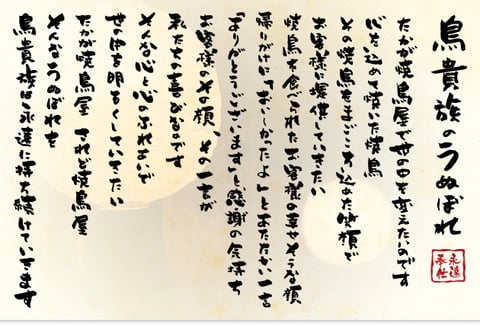 鳥貴族のうぬぼれ
永遠
奉仕
たかが焼鳥屋で世の中を変えたいのです
心を込めて焼いた焼鳥
その焼鳥をまごころ込めた笑顔で
お客様に提供していきたい
焼鳥を食べられたお客様の幸せそうな顔
帰りがけに「おいしかったよ」とあたたかい一言
「ありがとうございます」と感謝の気持ち
お客様のその顔、その一言が
私たちの喜びなのです
そんな心と心のふれあいで
世の中を明るくしていきたい
たかが焼鳥屋 されど焼鳥屋
そんなうぬぼれを
鳥貴族は永遠に持ち続けていきます